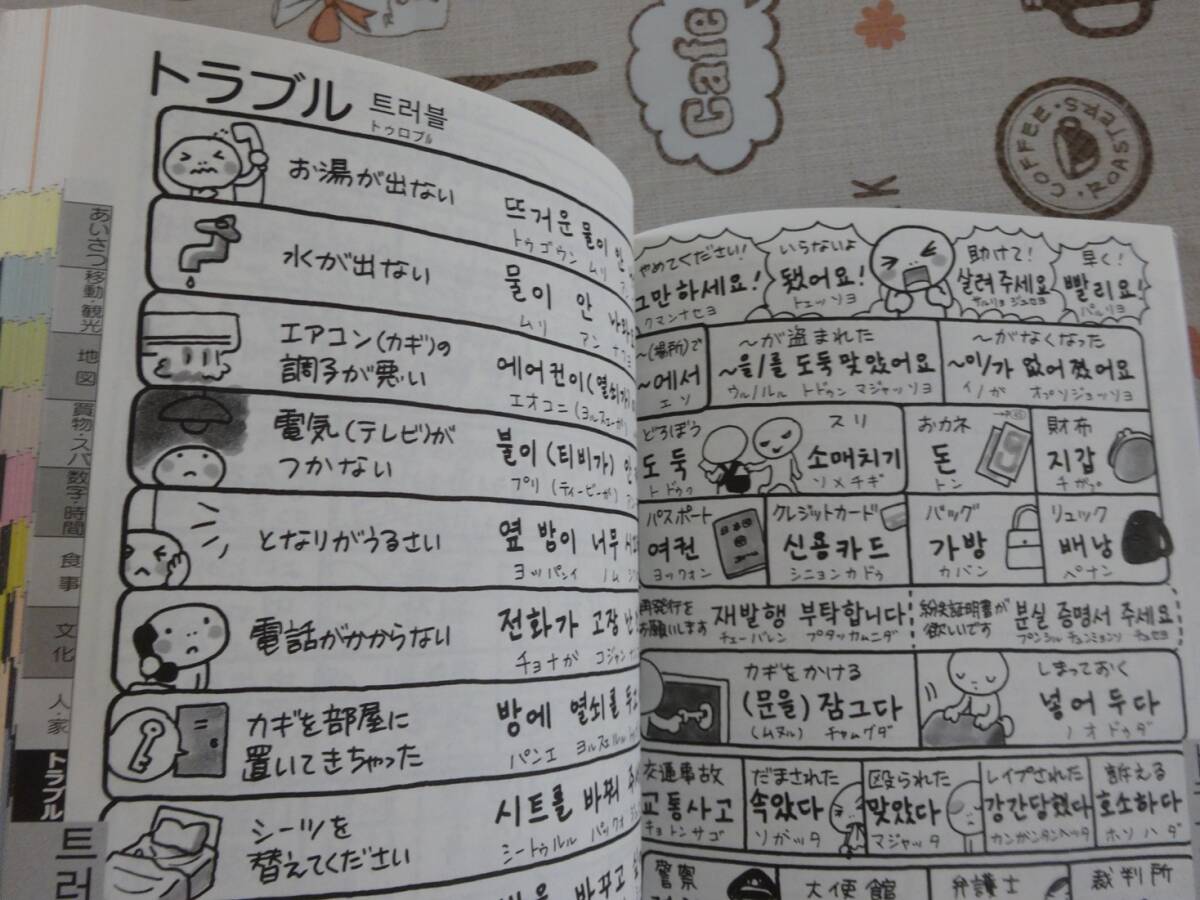 Cafe
COFFEE · ROASTERS ·
K
トラブル 트러블
トゥロブル
お湯が出ない
뜨거운 물이 안
トゥゴウン ムリ
水が出ない
물이 안
ムリ アン
エアコン(カギ)の
調子が悪い
에어컨이(열쇠가)
エオコニ
電気(テレビ)が
つかない
불이(티비가)
プリ (ティービーガ)
となりがうるさい
옆 방이 너무
ヨッ パンイ ノム
電話がかからない
전화가 고장
チョナガ コジャン
カギを部屋に
置いてきちゃった
방에 열쇠를
パンエ ヨルスェルル
シーツを
替えてください
시트를 바꿔
シートゥルル パックォ
바꾸고
あいさつ
移動・観光
地図
買物・スパ
数字・時間
食事
文化
人・家
トラブル
트러
やめてください!
그만하세요!
クマンナセヨ
いらないよ
됐어요!
トェッソヨ
助けて!
살려 주세요
サルリョ ジュセヨ
早く!
빨리요!
パルリヨ
~(場所)で
~에서
エソ
~が盗まれた
~을/를 도둑맞았어요
ウル/ルル トドゥン マジャッソヨ
~がなくなった
~이/가 없어졌어요
イ/ガ オプソジョッソヨ
どろぼう
도둑
トドゥク
スリ
소매치기
ソメチギ
おカネ
돈
トン
財布
지갑
チガプ
パスポート
여권
ヨックォン
クレジットカード
신용카드
シニョンカドゥ
バッグ
가방
カバン
リュック
배낭
ペナン
再発行を
お願いします
재발행 부탁합니다
チェーバレン プタッカムニダ
紛失証明書が
欲しいです
분실 증명서 주세요
プンシル チュンミョンソ チュセヨ
カギをかける
(문을) 잠그다
(ムヌル) チャムグダ
しまっておく
넣어 두다
ノオ ドゥダ
交通事故
교통사고
キョトンサゴ
だまされた
속았다
ソガッタ
殴られた
맞았다
マジャッタ
レイプされた
강간당했다
カンガンタンヘッタ
訴える
호소하다
ホソハダ
警察
大使館
弁護士
裁判所